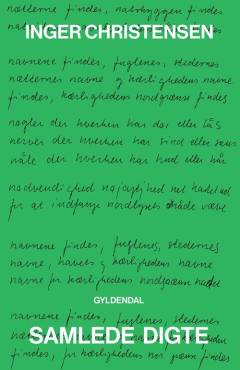 nætterne findes, natskyggen findes
INGER CHRISTENSEN
navnene findes, fuglenes, stedernes
nætternes navne og kærlighedens navne
findes, kærlighedens nordgrænse findes
nøgler der hverken har dør eller lås
nerver der hverken har sind eller sans
nåle der hverken har hud eller hår
nødvendighed nøjagtighed net
for at indfange nordlysets våde være
navnene findes, fuglenes, stedernes
navne, havets og kærlighedens navne
navne for kærlighedens nordgrænse
GYLDENDAL
navnene findes, fuglenes, stedernes
SAMLEDE DIGTE
findes, for kærlighedens grænse findes